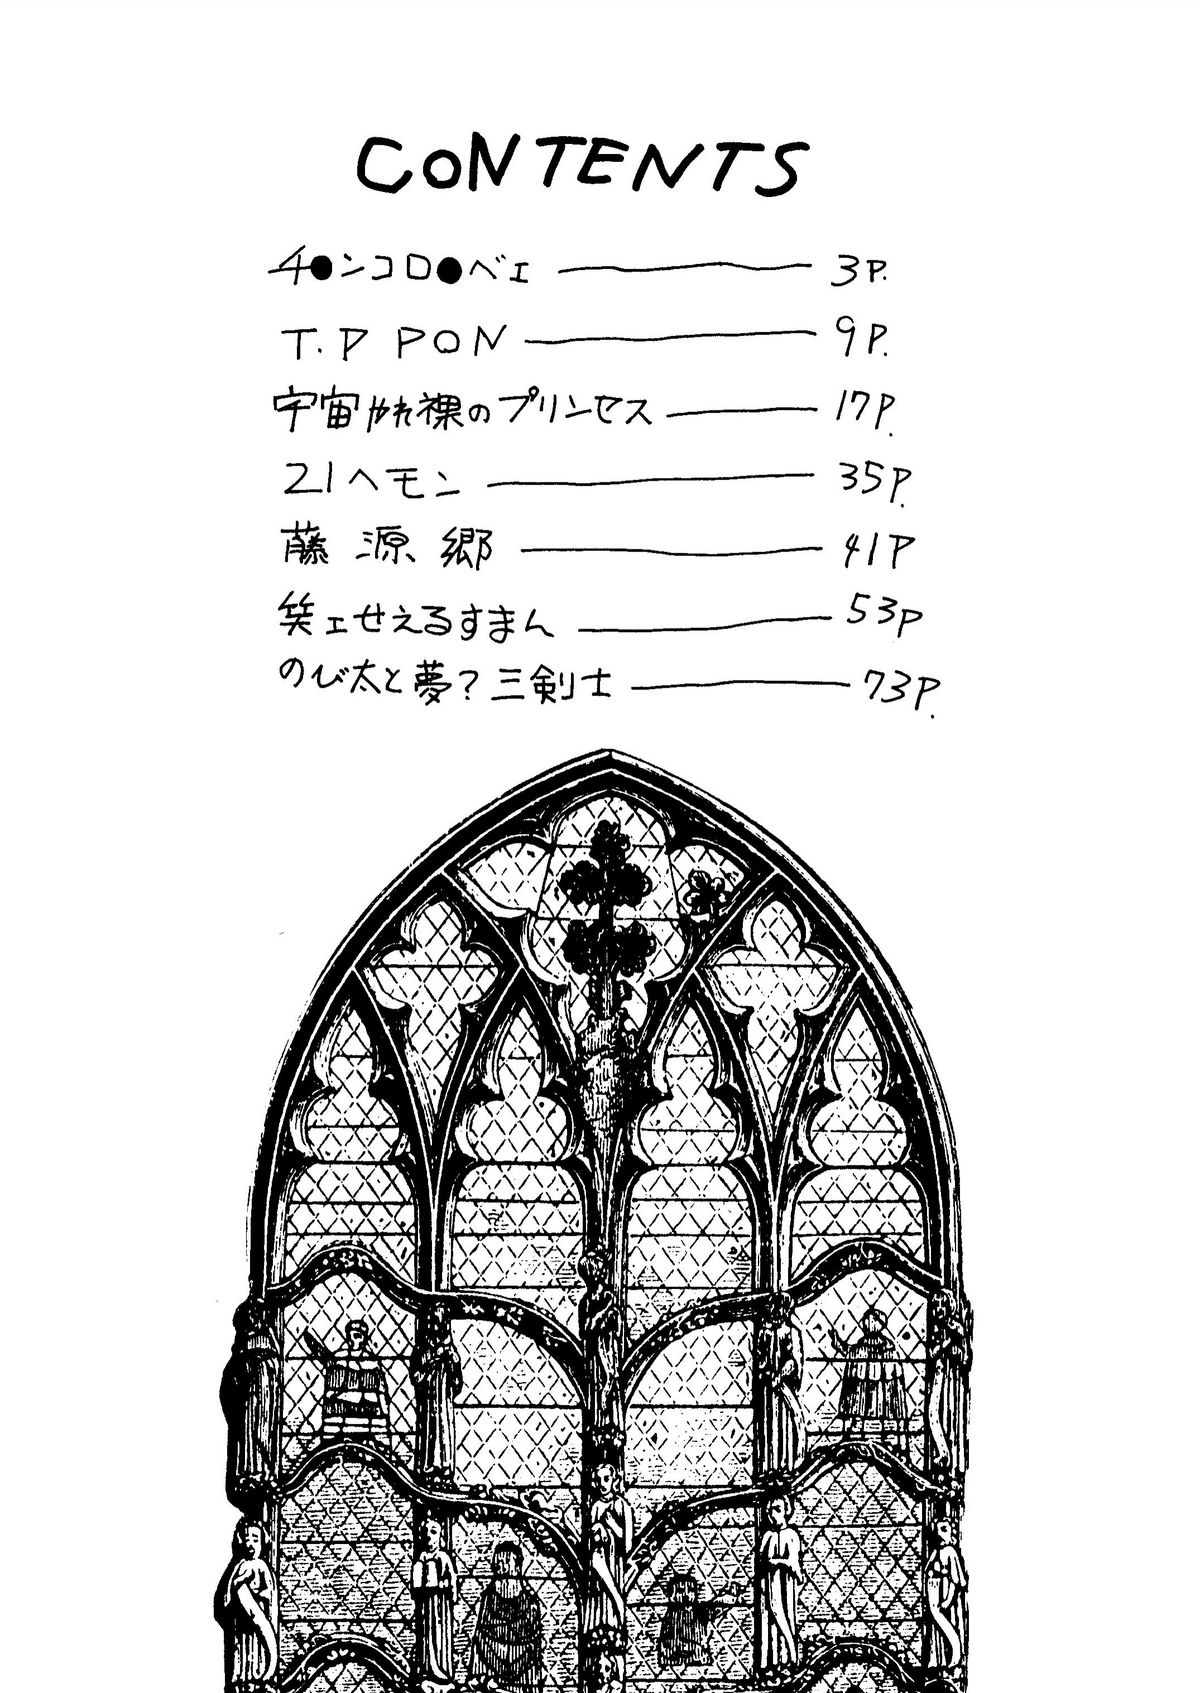 CONTENTS
チ●ンコロ●ベエ ――― 3P.
T.P PON ――― 9P.
宇宙かれ裸のプリンセス ――― 17P.
21ヘモン ――― 35P.
藤源郷 ――― 41P
笑ェせえるすまん ――― 53P
のび太と夢?三剣士 ――― 73P.